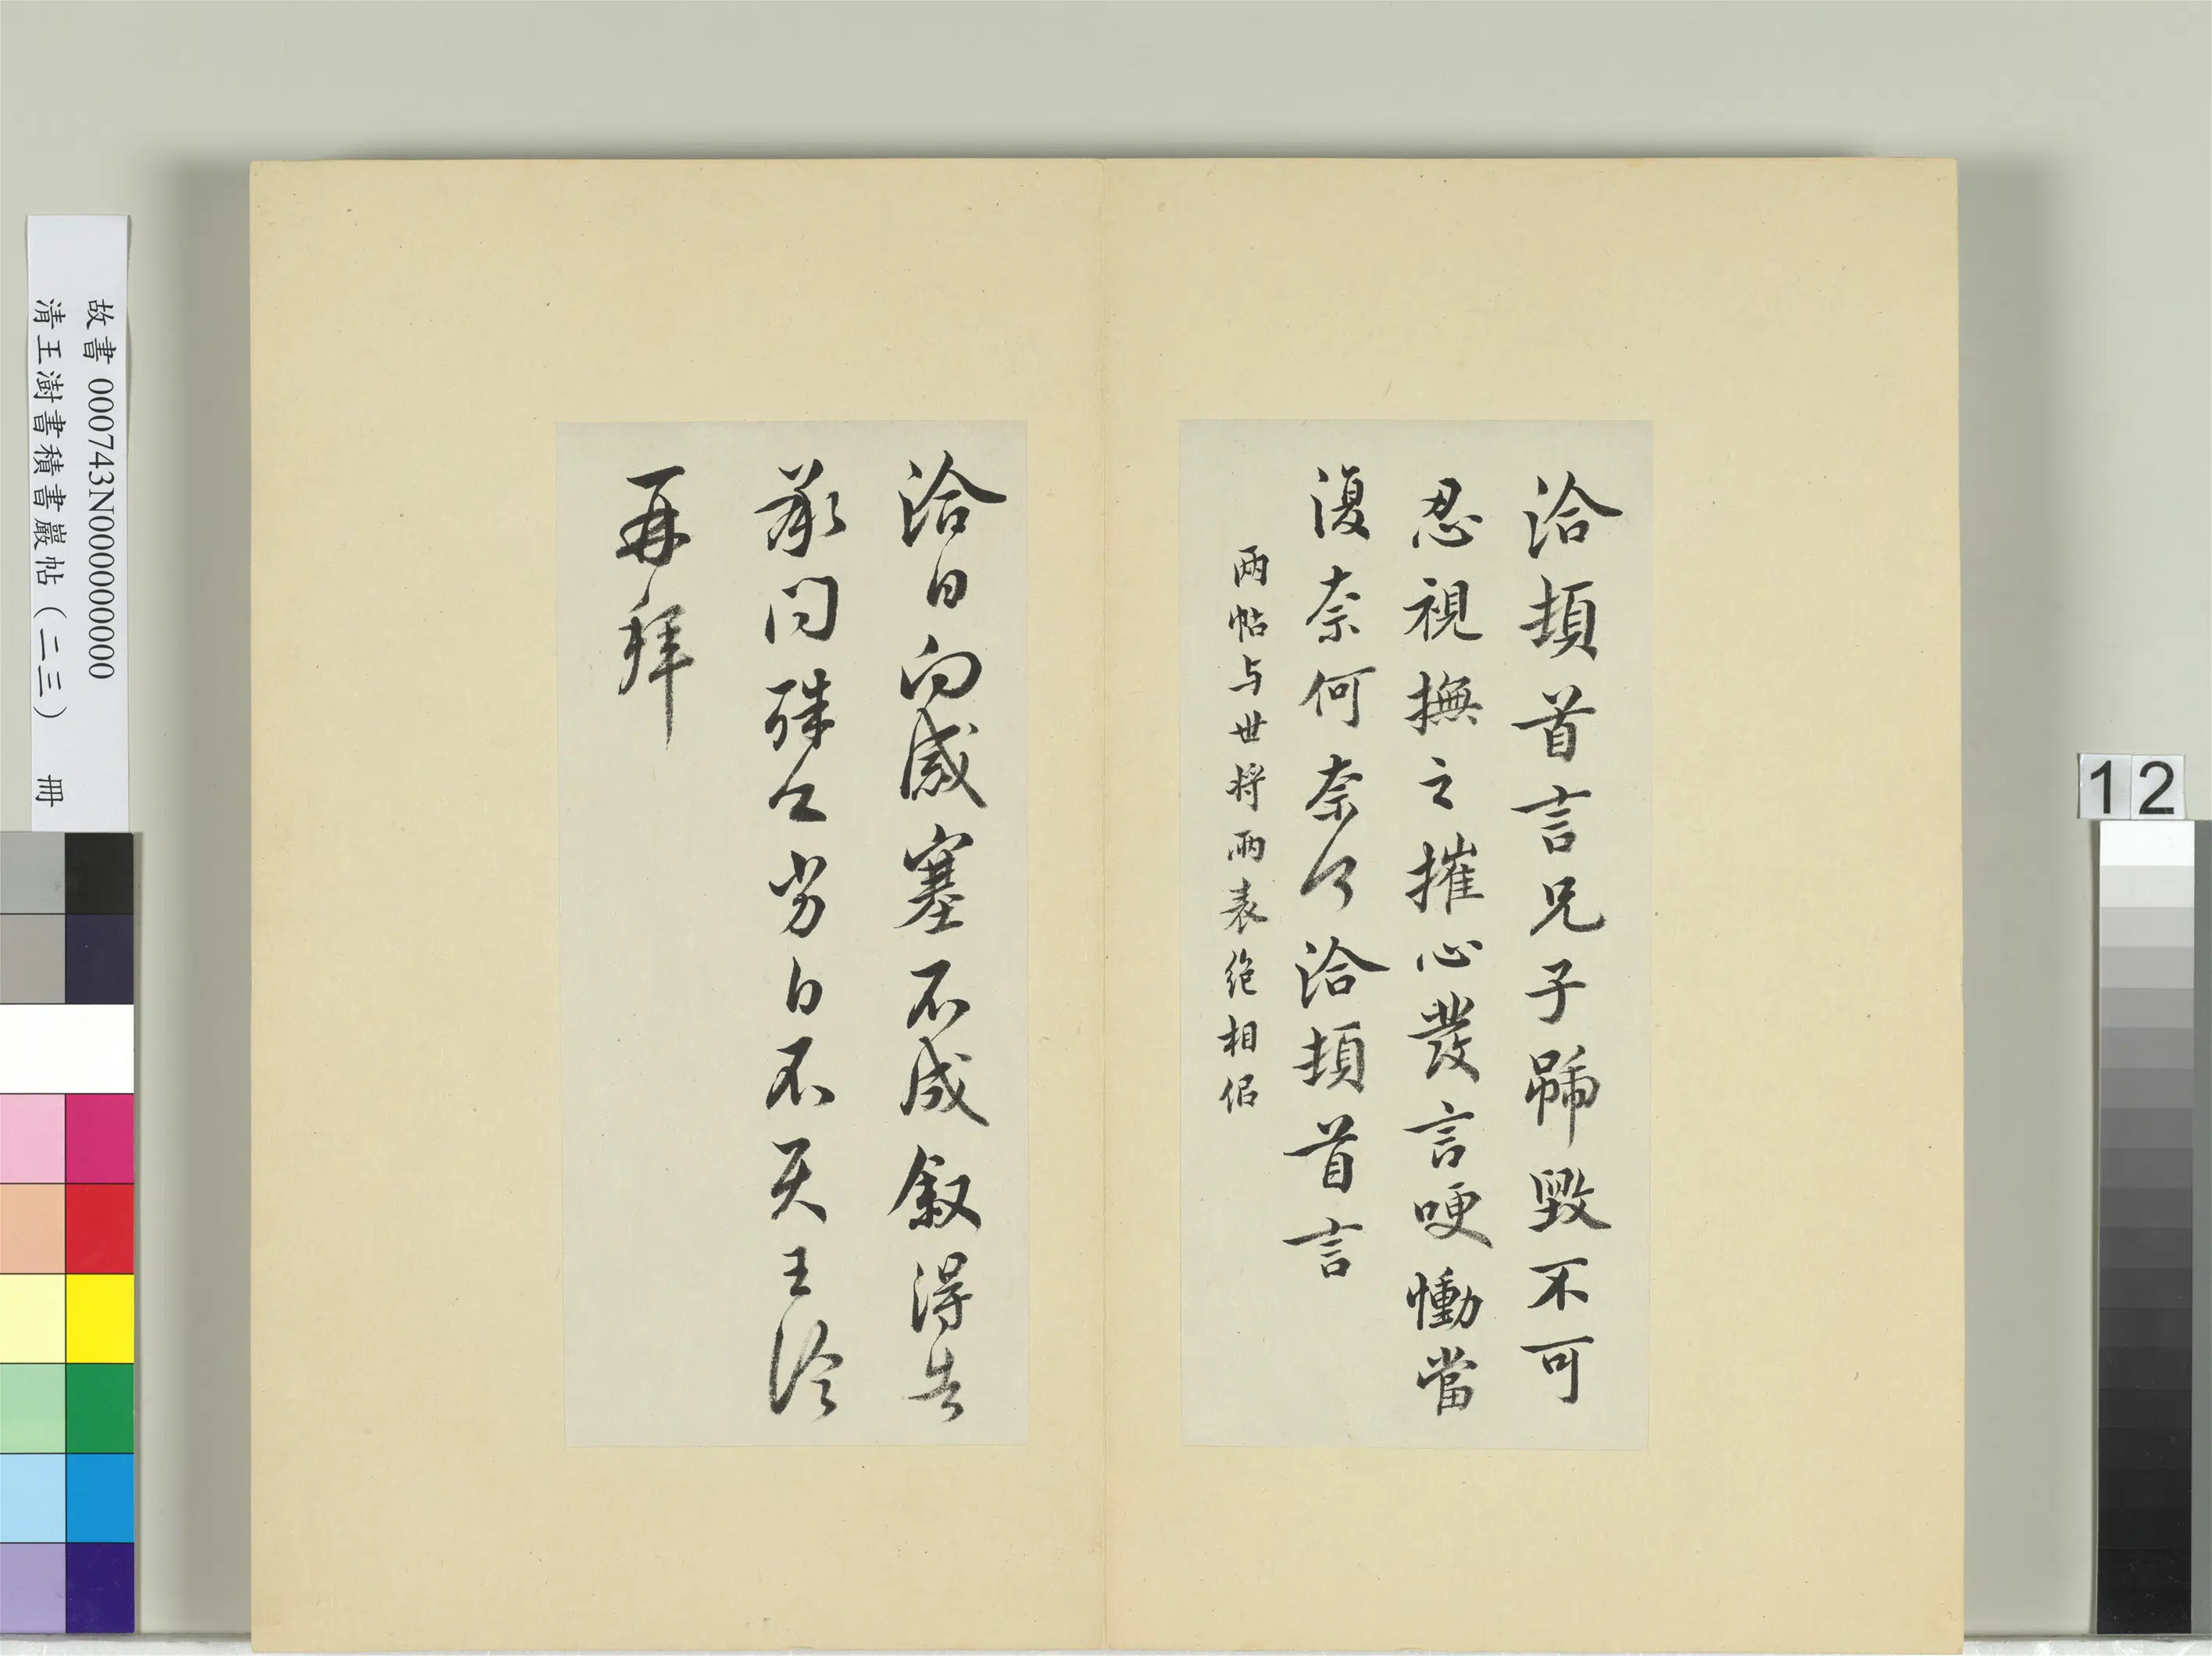 洽頓首言兄子號毀不可
忍視撫之摧心發言哽慟當
復奈何奈何洽頓首言
兩帖与世将兩表絶相侣
洽白向感塞不成叙得告
承問殊乏劣白不具王洽
再拜
故書 000743N000000000
清王澍書積書巖帖（二三） 冊
12